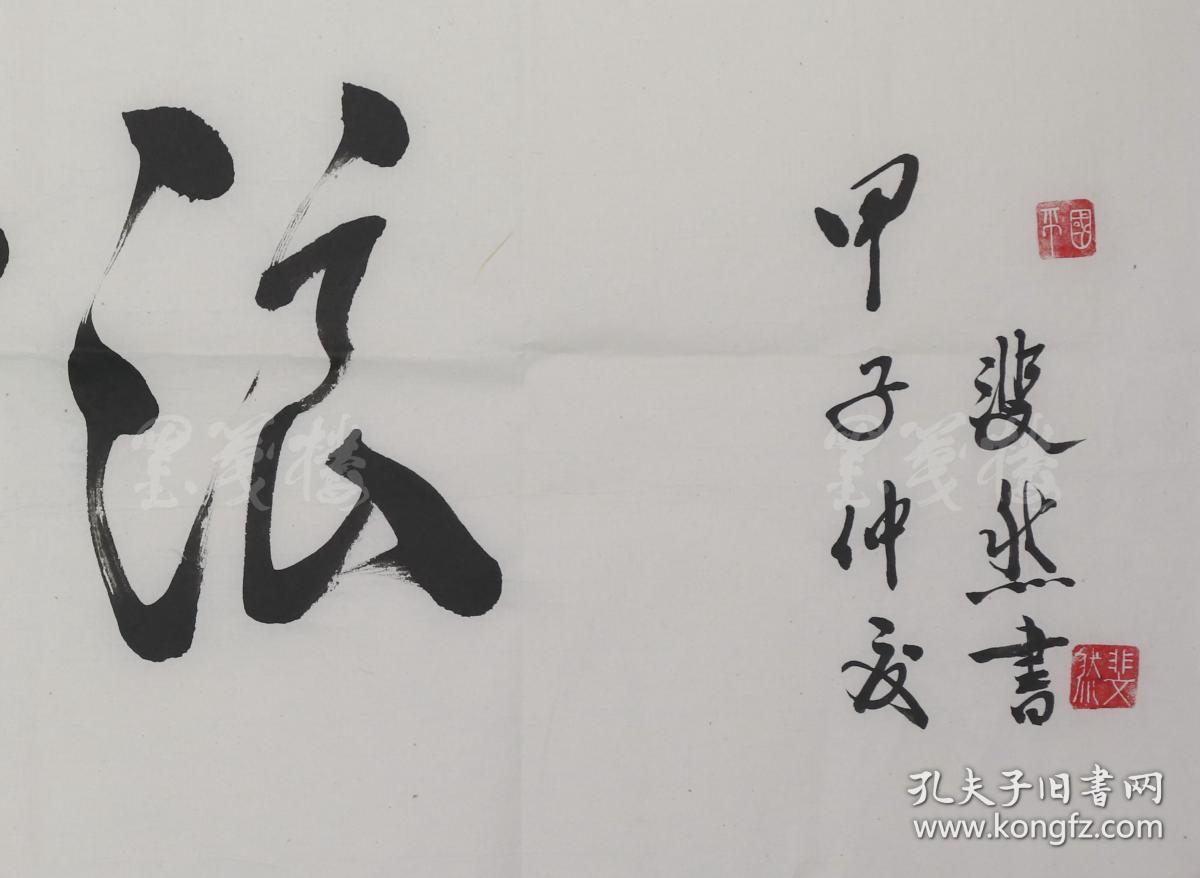 浪
甲子仲夏
斐然書
國平
斐然
墨笺楼
墨笺楼
孔夫子旧书网
www.kongfz.com